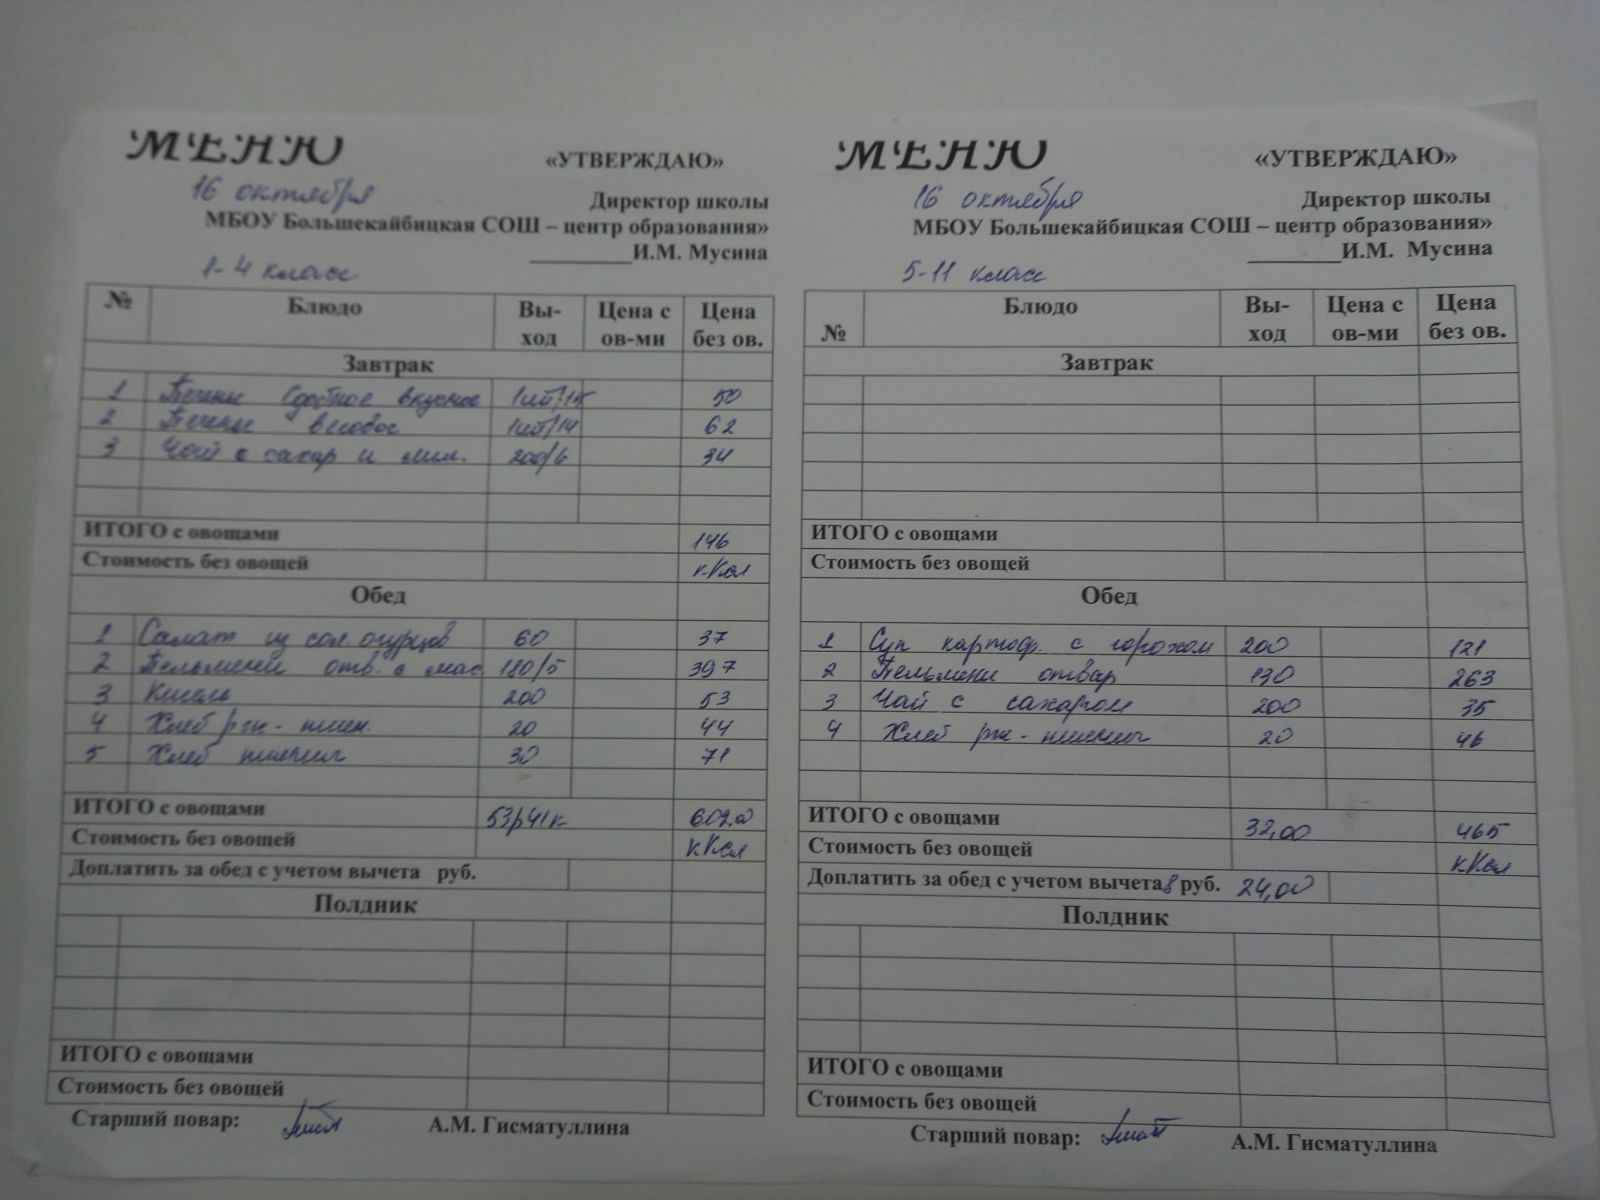 МЕНЮ
«УТВЕРЖДАЮ»
16 октября
Директор школы
МБОУ Большекайбицкая СОШ – центр образования»
И.М. Мусина
1-4 класс
№ Блюдо Вы-ход Цена с ов-ми Цена без ов.
Завтрак
1 Печенье Сдобное вкусное 1шт/15 50
2 Печенье весовое 1шт/14 62
3 Чай с сахар и лим. 200/6 34
ИТОГО с овощами 146
Стоимость без овощей кКал
Обед
1 Салат из сол. огурцов 60 37
2 Пельмени отв. с мас. 180/5 397
3 Кисель 200 53
4 Хлеб рж - пшен. 20 44
5 Хлеб пшенич 30 71
ИТОГО с овощами 53р41к 602,0
Стоимость без овощей кКал
Доплатить за обед с учетом вычета руб.
Полдник
ИТОГО с овощами
Стоимость без овощей
Старший повар: А.М. Гисматуллина
МЕНЮ
«УТВЕРЖДАЮ»
16 октября
Директор школы
МБОУ Большекайбицкая СОШ – центр образования»
И.М. Мусина
5-11 класс
№ Блюдо Вы-ход Цена с ов-ми Цена без ов.
Завтрак
ИТОГО с овощами
Стоимость без овощей
Обед
1 Суп картоф. с горохом 200 121
2 Пельмени отвар 130 263
3 Чай с сахаром 200 35
4 Хлеб рж - пшенич 20 46
ИТОГО с овощами 32,00 465
Стоимость без овощей кКал
Доплатить за обед с учетом вычета 8 руб. 24,00
Полдник
ИТОГО с овощами
Стоимость без овощей
Старший повар: А.М. Гисматуллина